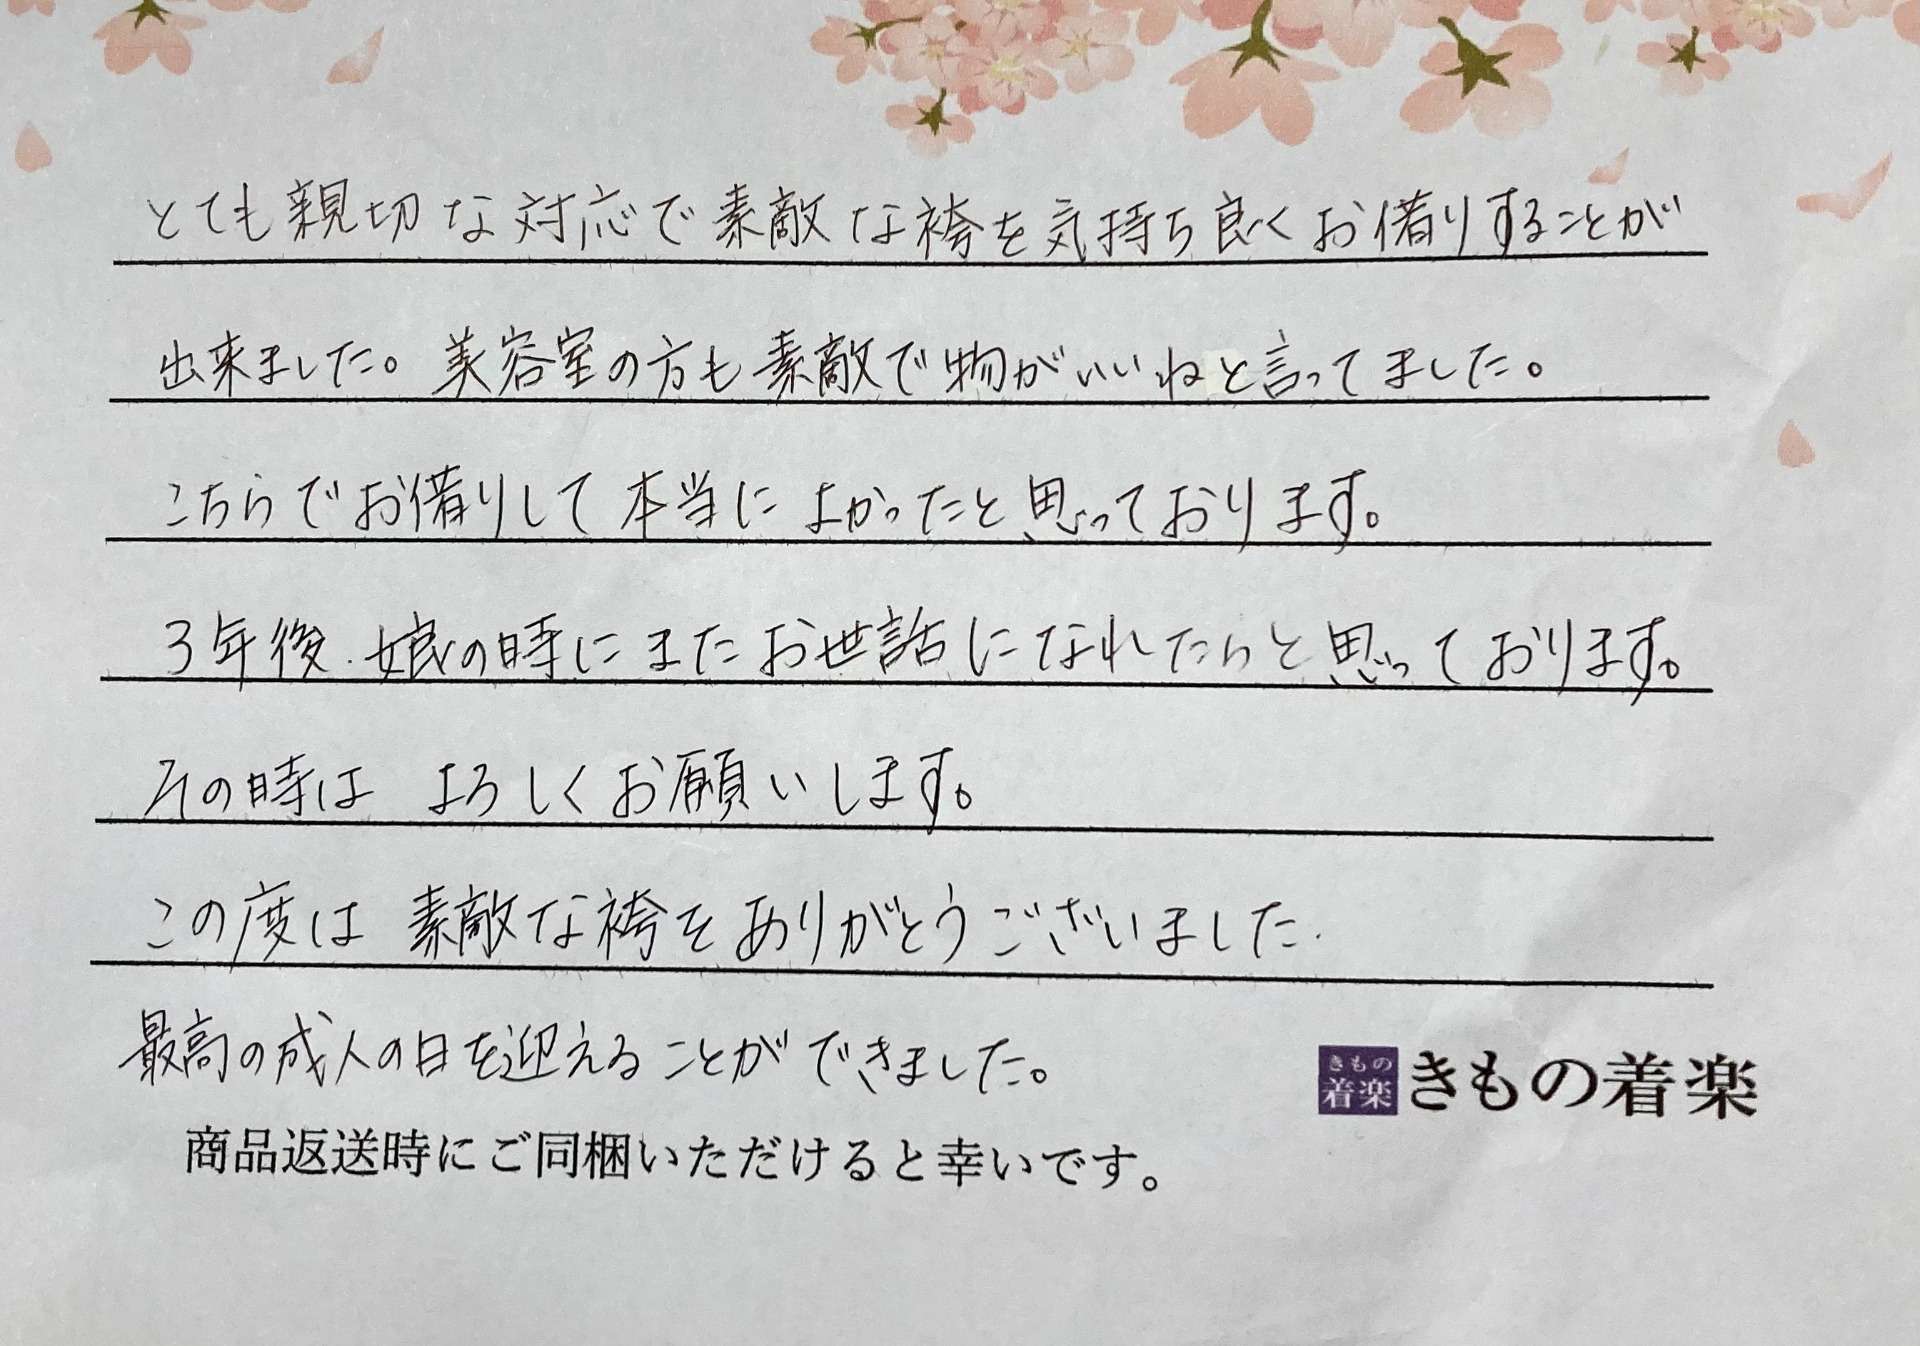 とても親切な対応で素敵な袴を気持ち良くお借りすることが
出来ました。美容室の方も素敵で物がいいねと言ってました。
こちらでお借りして本当によかったと思っております。
3年後、娘の時にまたお世話になれたらと思っております。
その時は よろしくお願いします。
この度は 素敵な袴をありがとうございました.
最高の成人の日を迎えることができました。
きもの
着楽
きもの着楽
商品返送時にご同梱いただけると幸いです。